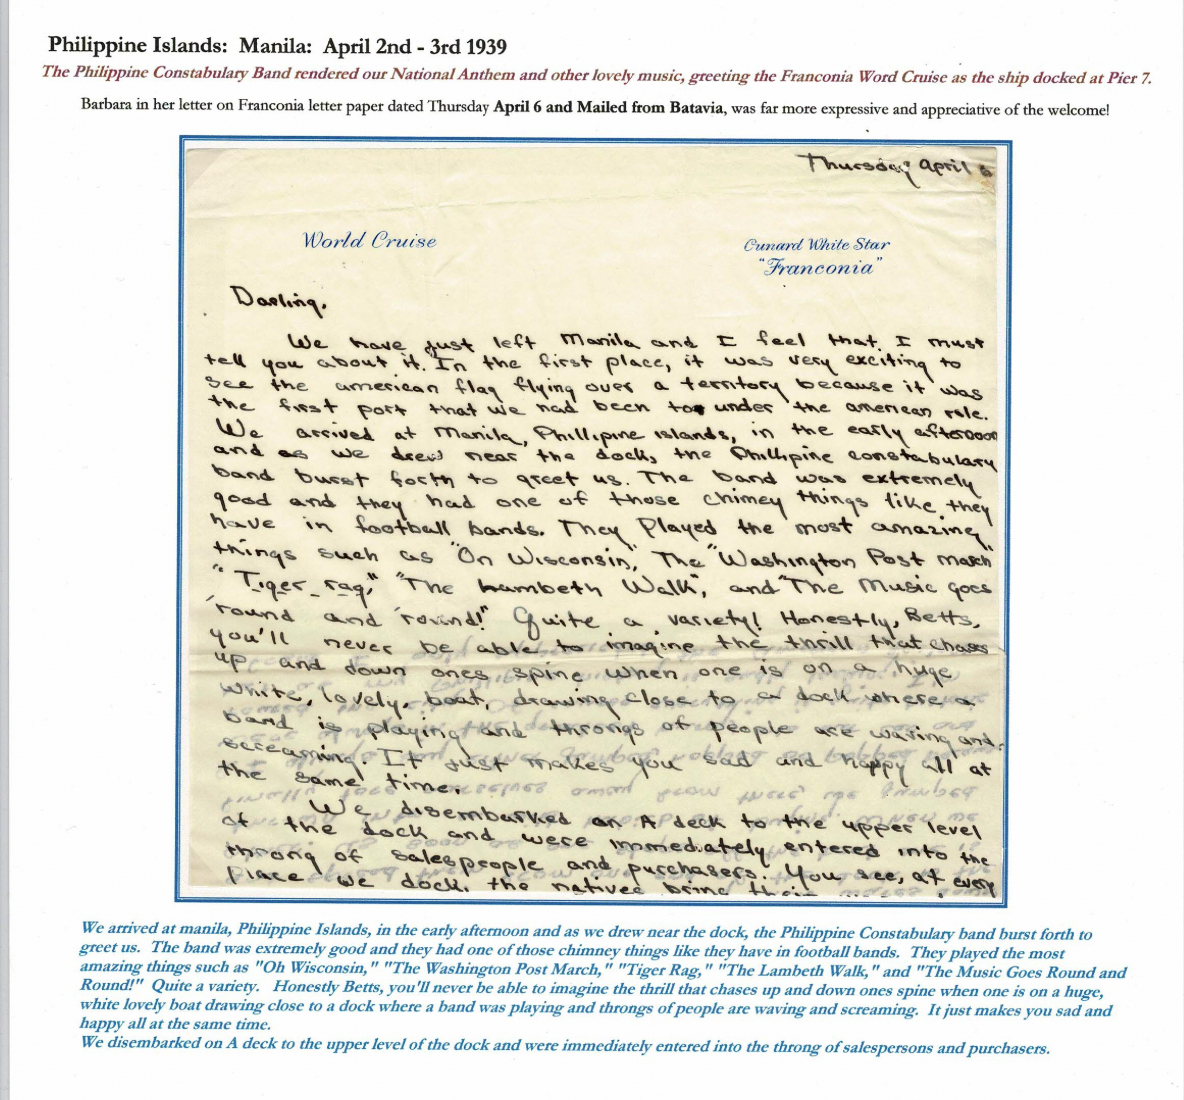 Philippine Islands:  Manila:  April 2nd - 3rd 1939
The Philippine Constabulary Band rendered our National Anthem and other lovely music, greeting the Franconia Word Cruise as the ship docked at Pier 7.
Barbara in her letter on Franconia letter paper dated Thursday April 6 and Mailed from Batavia, was far more expressive and appreciative of the welcome!
Thursday April 6
World Cruise
Cunard White Star
"Franconia"
Darling,
We have just left Manila and I feel that I must
tell you about it. In the first place, it was very exciting to
see the american flag flying over a territory because it was
the first port that we had been to under the american rule.
We arrived at Manila, Phillipine islands, in the early afternoon
and as we drew near the dock, the Phillipine constabulary
band burst forth to greet us. The band was extremely
good and they had one of those chimey things like they
have in football bands. They Played the most amazing
things such as "On Wisconsin," The "Washington Post march"
"Tiger rag," "The hambeth Walk", and "The Music goes
'round and 'round!" Quite a variety! Honestly, Betts,
you'll never be able to imagine the thrill that chases
up and down ones spine when one is on a huge
white, lovely, boat, drawing close to a dock where a
band is playing and throngs of people are waving and
screaming. It just makes you sad and happy all at
the same time.
We disembarked on A deck to the upper level
of the dock and were immediately entered into the
throng of salespeople and purchasers. You see, at every
place we dock, the natives bring their
We arrived at manila, Philippine Islands, in the early afternoon and as we drew near the dock, the Philippine Constabulary band burst forth to
greet us.  The band was extremely good and they had one of those chimney things like they have in football bands.  They played the most
amazing things such as "Oh Wisconsin," "The Washington Post March," "Tiger Rag," "The Lambeth Walk," and "The Music Goes Round and
Round!"  Quite a variety.   Honestly Betts, you'll never be able to imagine the thrill that chases up and down ones spine when one is on a huge,
white lovely boat drawing close to a dock where a band was playing and throngs of people are waving and screaming.  It just makes you sad and
happy all at the same time.
We disembarked on A deck to the upper level of the dock and were immediately entered into the throng of salespersons and purchasers.